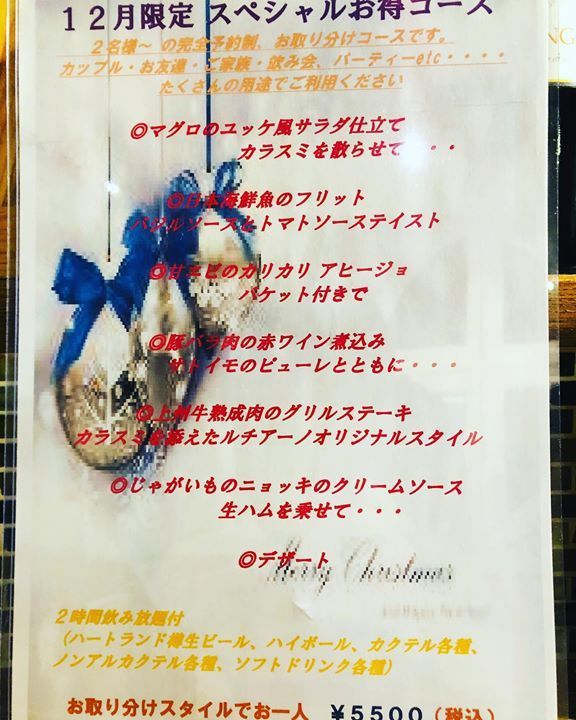 12月限定 スペシャルお得コース
2名様~ の完全予約制、お取り分けコースです。
カップル・お友達・ご家族・飲み会、パーティーetc・・・・
たくさんの用途でご利用ください
◎マグロのユッケ風サラダ仕立て
カラスミを散らせて・・・
◎日本海鮮魚のフリット
バジルソースとトマトソーステイスト
◎甘エビのカリカリ アヒージョ
バケット付きで
◎豚バラ肉の赤ワイン煮込み
サトイモのピューレとともに・・・
◎上州牛熟成肉のグリルステーキ
カラスミを添えたルチアーノオリジナルスタイル
◎じゃがいものニョッキのクリームソース
生ハムを乗せて・・・
◎デザート
Merry Christmas
2時間飲み放題付
(ハートランド樽生ビール、ハイボール、カクテル各種、
ノンアルカクテル各種、ソフトドリンク各種)
お取り分けスタイルでお一人 ¥5500(税込)